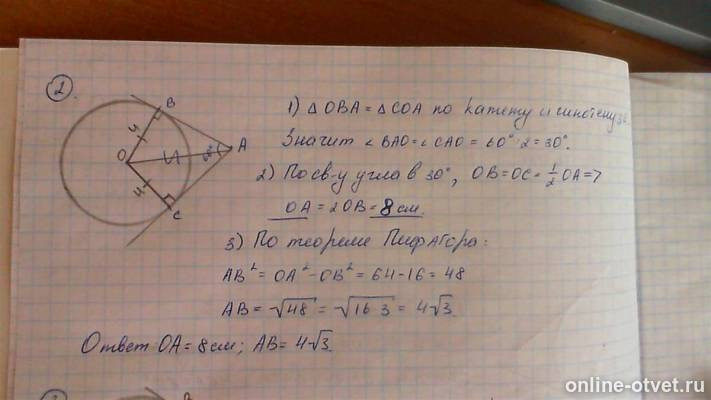 2.
B
4
O
60°
A
4
C
1) △ OBA = △ COA по катету и гипотенузе
Значит ∠ BAO = ∠ CAO = 60° : 2 = 30°.
2) По св-у угла в 30°, OB = OC = 1/2 OA =>
OA = 2OB = 8 см.
3) По теореме Пифагора:
AB² = OA² - OB² = 64 - 16 = 48
AB = √48 = √16·3 = 4√3.
Ответ OA = 8 см; AB = 4√3.
B
online-otvet.ru